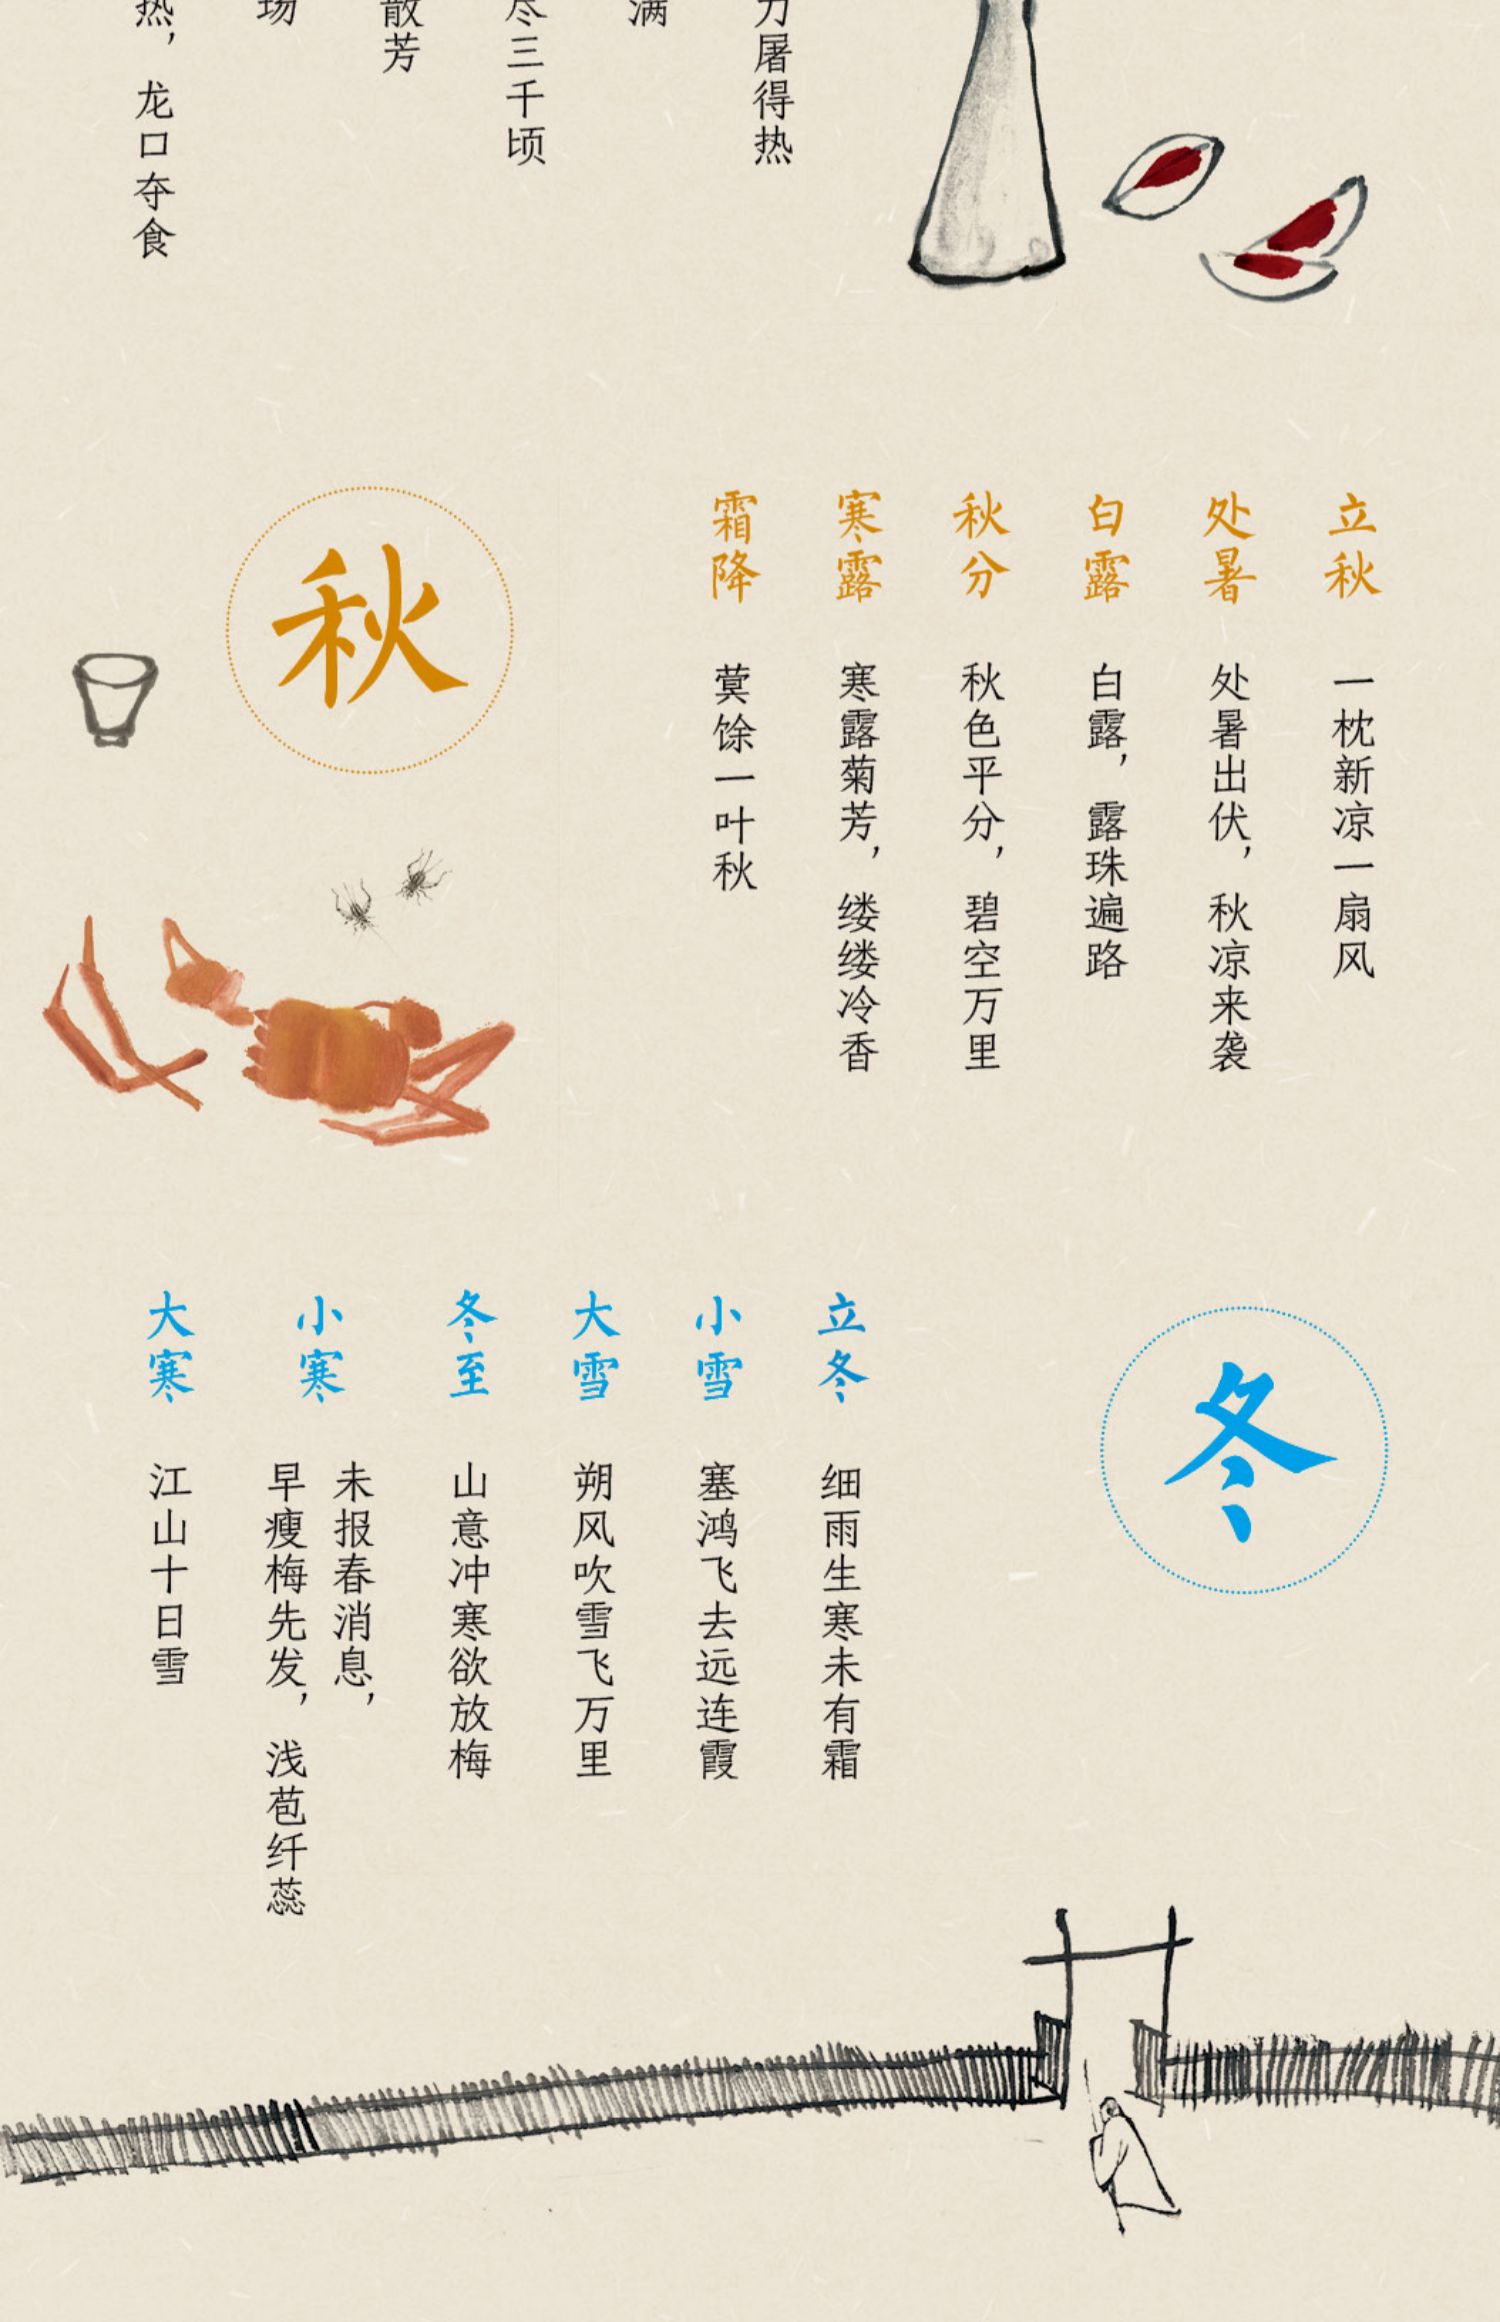 力屠得热
满
尽三千顷
散芳
场
热，龙口夺食
秋
立秋
一枕新凉一扇风
处暑
处暑出伏，秋凉来袭
白露
白露，露珠遍路
秋分
秋色平分，碧空万里
寒露
寒露菊芳，缕缕冷香
霜降
蓂馀一叶秋
冬
立冬
细雨生寒未有霜
小雪
塞鸿飞去远连霞
大雪
朔风吹雪飞万里
冬至
山意冲寒欲放梅
小寒
未报春消息，
早瘦梅先发，浅苞纤蕊
大寒
江山十日雪